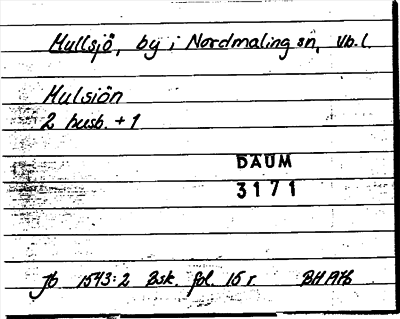 Hullsjö, by i Nordmaling sn, Vb.l.
Hulsiön
2 husb. + 1
DAUM
3171
Jb 1543:2 Bsk. fol. 15 r.